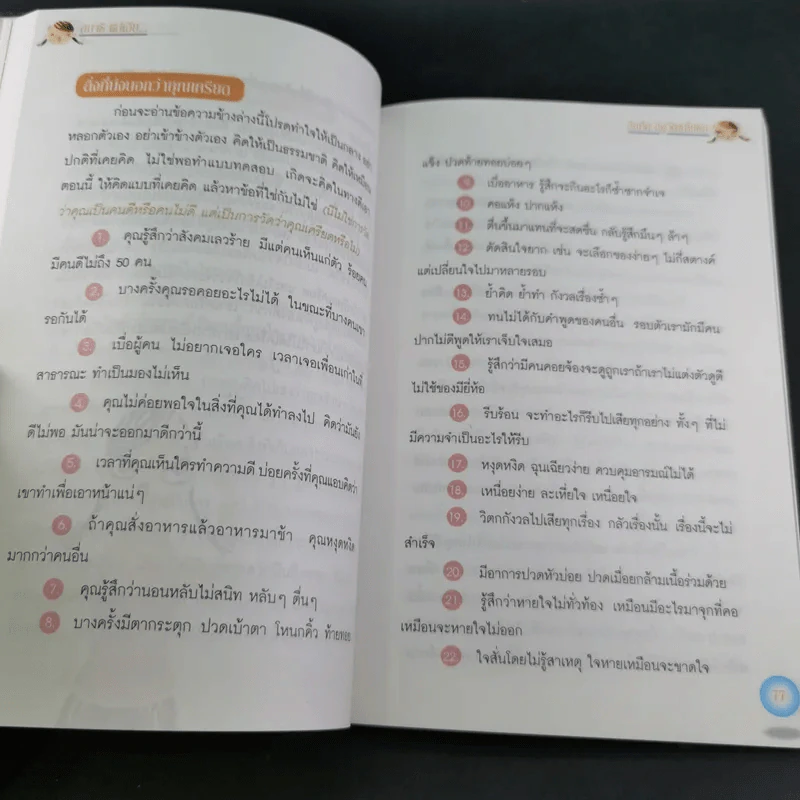 สิ่งที่บ่งบอกว่าคุณเครียด
ก่อนจะอ่านข้อความข้างล่างนี้โปรดทำใจให้เป็นกลาง อย่า
หลอกตัวเอง อย่าเข้าข้างตัวเอง คิดให้เป็นธรรมชาติ คิดให้เหมือน
ปกติที่เคยคิด ไม่ใช่พอทำแบบทดสอบ เกิดจะคิดในทาง
ตอนนี้ ให้คิดแบบที่เคยคิด แล้วหาข้อที่ใช่กับไม่ใช่ (นี่ไม่ใช่การวัด
ว่าคุณเป็นคนดีหรือคนไม่ดี แต่เป็นการวัดว่าคุณเครียดหรือไม่)
1. คุณรู้สึกว่าสังคมเลวร้าย มีแต่คนเห็นแก่ตัว ร้อยคน
มีคนดีไม่ถึง 50 คน
2. บางครั้งคุณรอคอยอะไรไม่ได้ ในขณะที่บางคนเขา
รอกันได้
3. เบื่อผู้คน ไม่อยากเจอใคร เวลาเจอเพื่อนเก่าในที่
สาธารณะ ทำเป็นมองไม่เห็น
4. คุณไม่ค่อยพอใจในสิ่งที่คุณได้ทำลงไป คิดว่ามันยัง
ดีไม่พอ มันน่าจะออกมาดีกว่านี้
5. เวลาที่คุณเห็นใครทำความดี บ่อยครั้งที่คุณแอบคิดว่า
เขาทำเพื่อเอาหน้าแน่ๆ
6. ถ้าคุณสั่งอาหารแล้วอาหารมาช้า คุณหงุดหงิด
มากกว่าคนอื่น
7. คุณรู้สึกว่านอนหลับไม่สนิท หลับๆ ตื่นๆ
8. บางครั้งมีตากระตุก ปวดเบ้าตา โหนกคิ้ว ท้ายทอย
แข็ง ปวดท้ายทอยบ่อยๆ
9. เบื่ออาหาร รู้สึกจะกินอะไรก็ซ้ำซากจำเจ
10. คอแห้ง ปากแห้ง
11. ตื่นขึ้นมาแทนที่จะสดชื่น กลับรู้สึกมึนๆ ล้าๆ
12. ตัดสินใจยาก เช่น จะเลือกของง่ายๆ ไม่กี่สตางค์
แต่เปลี่ยนใจไปมาหลายรอบ
13. ย้ำคิด ย้ำทำ กังวลเรื่องซ้ำๆ
14. ทนไม่ได้กับคำพูดของคนอื่น รอบตัวเรามักมีคน
ปากไม่ดีพูดให้เราเจ็บใจเสมอ
15. รู้สึกว่ามีคนคอยจ้องจะดูถูกเราถ้าเราไม่แต่งตัวดูดี
ไม่ใช้ของมียี่ห้อ
16. รีบร้อน จะทำอะไรก็รีบไปเสียทุกอย่าง ทั้งๆ ที่ไม่
มีความจำเป็นอะไรให้รีบ
17. หงุดหงิด ฉุนเฉียวง่าย ควบคุมอารมณ์ไม่ได้
18. เหนื่อยง่าย ละเหี่ยใจ เหนื่อยใจ
19. วิตกกังวลไปเสียทุกเรื่อง กลัวเรื่องนั้น เรื่องนี้จะไม่
สำเร็จ
20. มีอาการปวดหัวบ่อย ปวดเมื่อยกล้ามเนื้อร่วมด้วย
21. รู้สึกว่าหายใจไม่ทั่วท้อง เหมือนมีอะไรมาจุกที่คอ
เหมือนจะหายใจไม่ออก
22. ใจสั่นโดยไม่รู้สาเหตุ ใจหายเหมือนจะขาดใจ
77